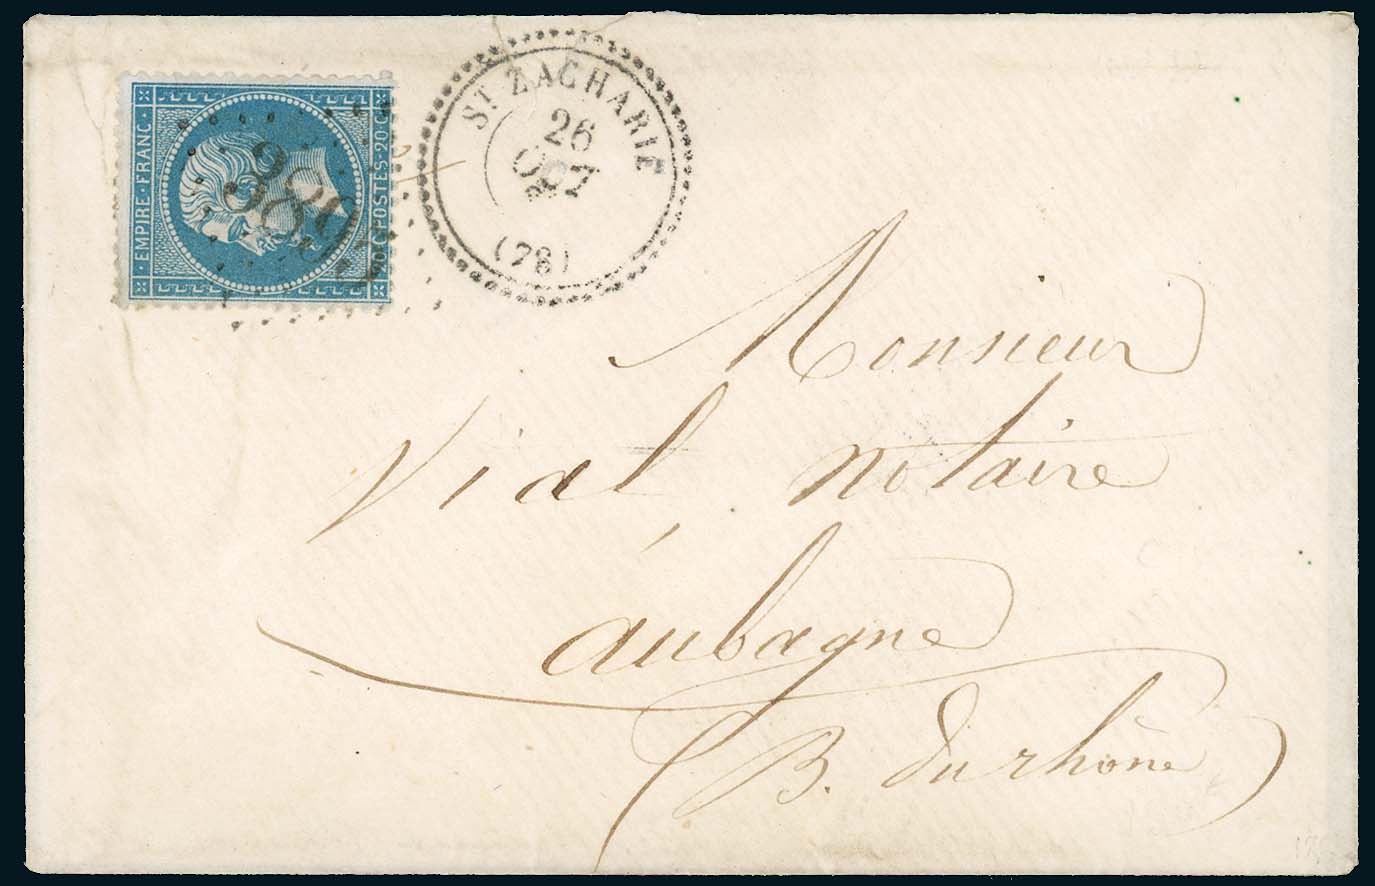 EMPIRE · FRANC ·
20 C · POSTES · 20 C
ST ZACHARIE
26
OCT
(78)
Monsieur
Vial, notaire
à aubagne
(B. du rhône)